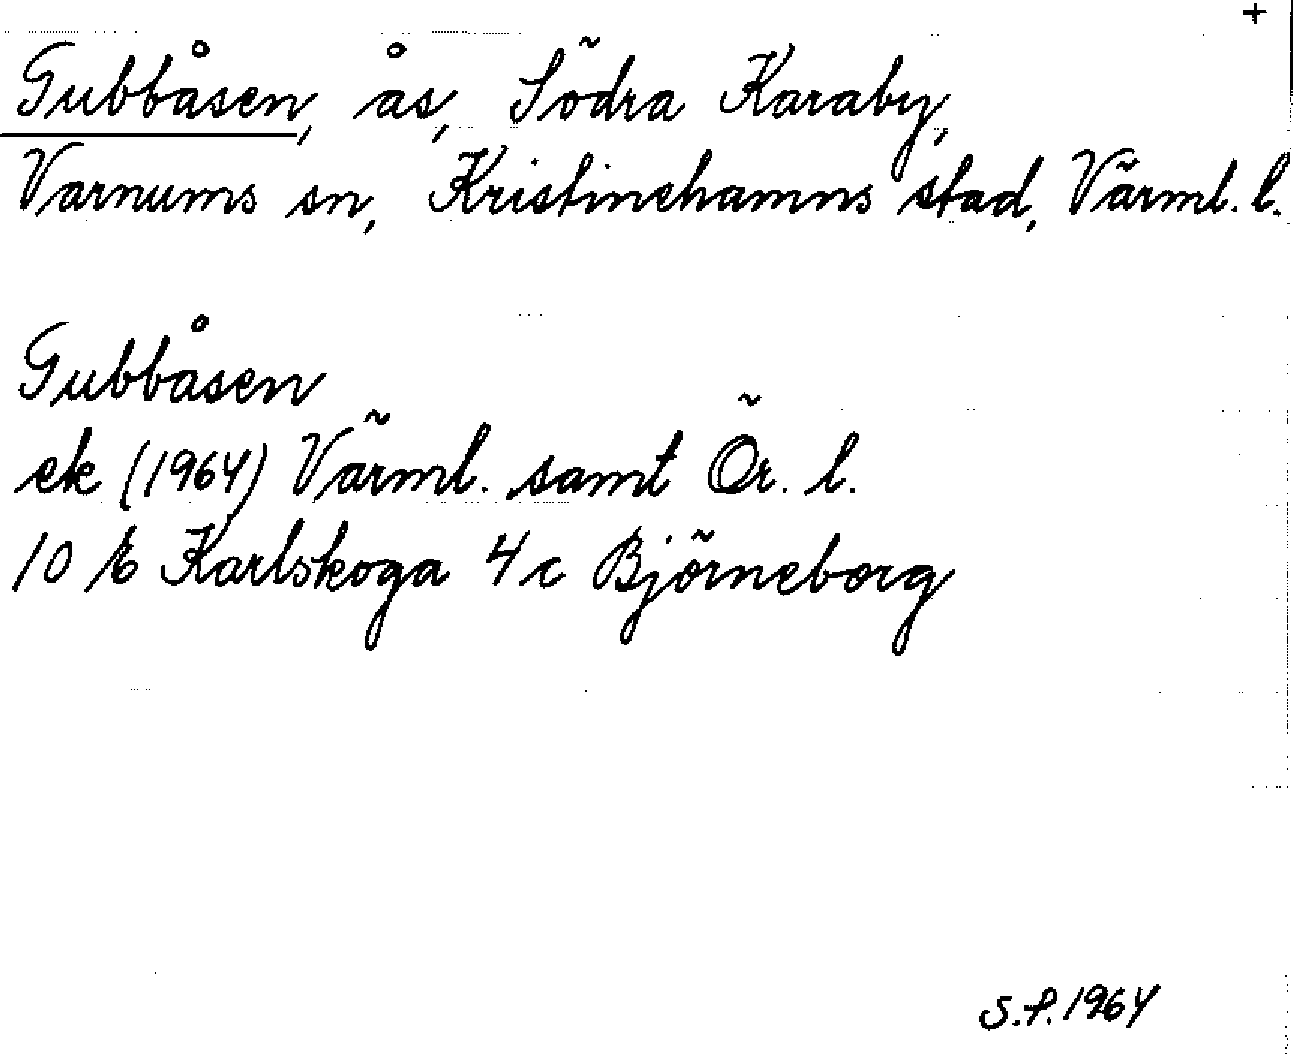 +
Gubbåsen, ås, Södra Karaby,
Varnums sn, Kristinehamns stad, Värml. l.
Gubbåsen
ek (1964) Värml. samt Ör. l.
10 E Karlskoga 4 c Björneborg
S.P. 1964